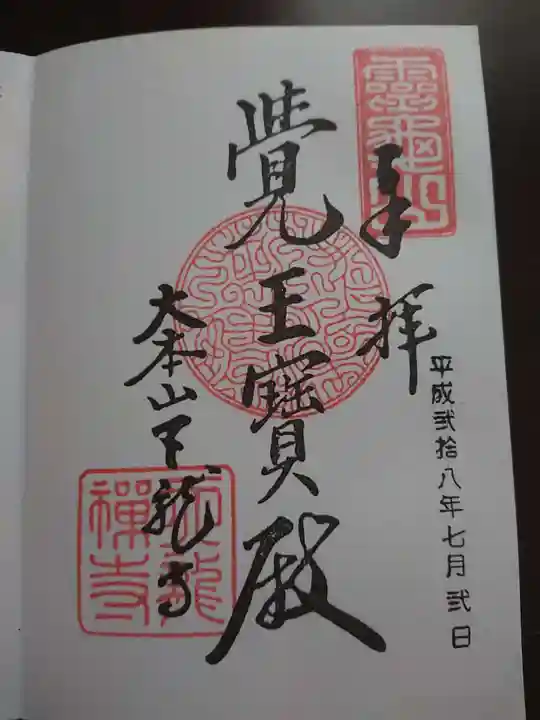 靈龜山
奉拜
平成弐拾八年七月弐日
覺王寶殿
大本山天龍寺
天龍禪寺